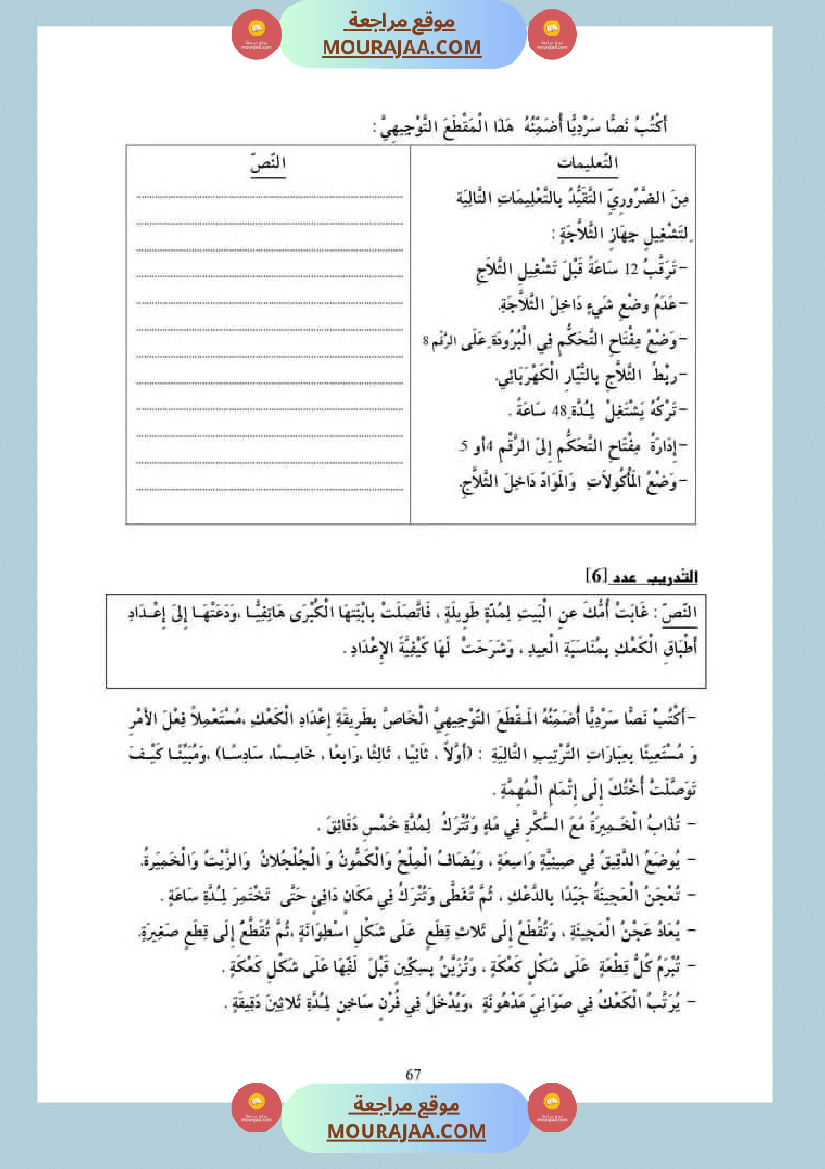 موقع مراجعة
MOURAJAA.COM
أَكْتُبُ نَصًّا سَرْدِيًّا أُضَمِّنُهُ هَذَا الْمَقْطَعَ التَّوْجِيهِيَّ :
التّعليمات
مِنَ الضَّرُورِيِّ التَّقَيُّدُ بِالتَّعْلِيمَاتِ التَّالِيَة
لِتَشْغِيلِ جِهَازِ الثَّلاَّجَةِ :
-تَرَقُّبُ 12 سَاعَةً قَبْلَ تَشْغِيلِ الثَّلاَّجِ
-عَدَمُ وضْعِ شَيءٍ دَاخِلَ الثَّلاَّجَةِ.
-وَضْعُ مِفْتَاحِ التَّحَكُّمِ فِي الْبُرُودَةِ عَلَى الرَّقْمِ 8
-ربْطُ الثَّلاَّجِ بِالتَّيَّارِ الْكَهْرَبَائِي.
-تَرْكُهُ يَشْتَغِلْ لِمُدَّةِ 48 سَاعَةً .
-إِدَارَةُ مِفْتَاحِ التَّحَكُّمِ إِلَى الرَّقْمِ 4 أو 5.
-وَضْعُ المَأْكُولاَتِ وَالمَوَادِّ دَاخِلَ الثَّلاَّجِ.
النّصّ
التّدريب عدد [6]
النّصّ : غَابَتْ أُمُّكَ عنِ الْبَيتِ لِمُدّةٍ طَوِيلَةٍ ، فَاتَّصَلَتْ بِابْنَتِهَا الْكُبْرَى هَاتِفِيًّا ،وَدَعَتْهَا إِلىَ إِعْدَادِ
أَطْبَاقِ الْكَعْكِ بِمُنَاسَبَةِ الْعِيدِ ، وَشَرَحَتْ لَهَا كَيْفِيَّةَ الإِعْدَادِ .
-أَكْتُبُ نَصًّا سَرْدِيًّا أُضَمِّنُهُ الْمَقْطَعَ التَّوْجِيهِيَّ الْخَاصَّ بِطَرِيقَةِ إِعْدَادِ الْكَعْكِ ،مُسْتَعْمِلاً فِعْلَ الأَمْرِ
وَ مُسْتَعِينًا بِعِبَارَاتِ التَّرْتِيبِ التَّالِيَةِ : (أوّلاً ، ثَانِيًا ، ثَالِثًا ،رَابِعًا ، خَامِسًا، سَادِسًا) ،وَمُبَيِّنًا كَيْفَ
تَوَصَّلَتْ أُخْتُكَ إِلَى إِتْمَامِ الْمُهِمَّةِ .
- تُذَابُ الْخَمِيرَةُ مَعَ السُّكَّرِ فِي مَاءٍ وَتُتْرَكُ لِمُدَّةِ خَمْسِ دَقَائِقَ .
- يُوضَعُ الدَّقِيقُ فِي صِينِيَّةٍ وَاسِعَةٍ ، وَيُضَافُ الْمِلْحُ وَالْكَمُّونُ وَ الْجُلْجُلاَنُ وَالزَّيْتُ وَالْخَمِيرَةُ.
- تُعْجَنُ الْعَجِينَةُ جَيِّدًا بِالدَّعْكِ ، ثُمَّ تُغَطَّى وَتُتْرَكُ فِي مَكَانٍ دَافِئٍ حَتَّى تَخْتَمِرَ لِمُدَّةِ سَاعَةٍ .
- يُعَادُ عَجْنُ الْعَجِينَةِ ، وَتُقْطَعُ إِلَى ثَلاَثِ قِطَعٍ عَلَى شَكْلِ اسْطِوَانَةٍ ،ثُمَّ تُقَطَّعُ إِلَى قِطَعٍ صَغِيرَةٍ.
- تُبْرَمُ كُلُّ قِطْعَةٍ عَلَى شَكْلِ كَعْكَةٍ ، وَتُزَيَّنُ بِسِكِّينٍ قَبْلَ لَفِّهَا عَلَى شَكْلِ كَعْكَةٍ .
- يُرَتَّبُ الْكَعْكُ فِي صَوَانِيَ مَدْهُونَةٍ ،وَيُدْخَلُ فِي فُرْنٍ سَاخِنٍ لِمُدَّةِ ثَلاَثِينَ دَقِيقَةً .
67
موقع مراجعة
MOURAJAA.COM